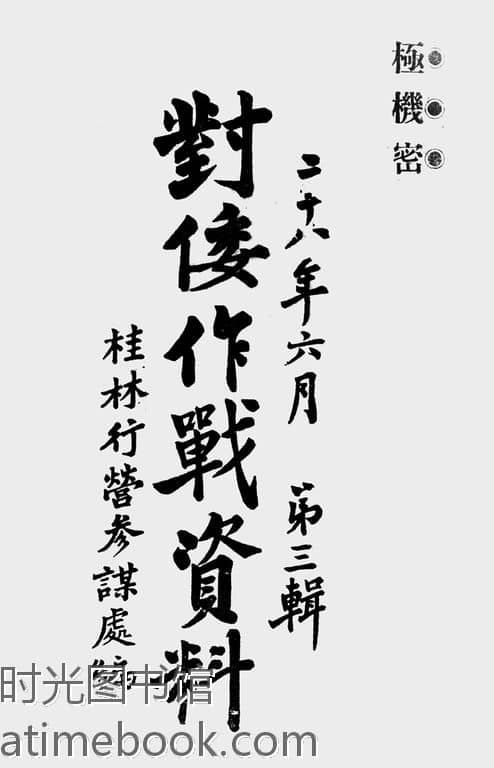 極機密
二十八年六月 第三輯
對倭作戰資料
桂林行營參謀處編
时光图书馆
atimebook.com